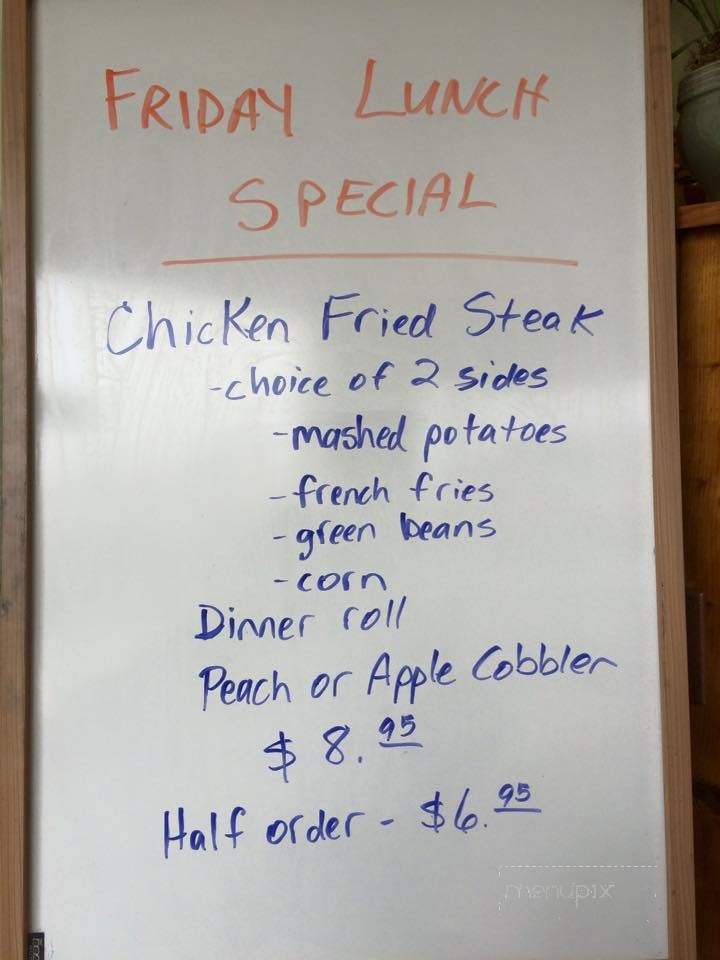 FRIDAY LUNCH
SPECIAL
Chicken Fried Steak
-choice of 2 sides
-mashed potatoes
-french fries
-green beans
-corn
Dinner roll
Peach or Apple Cobbler
$ 8.95
Half order - $6.95
menupix